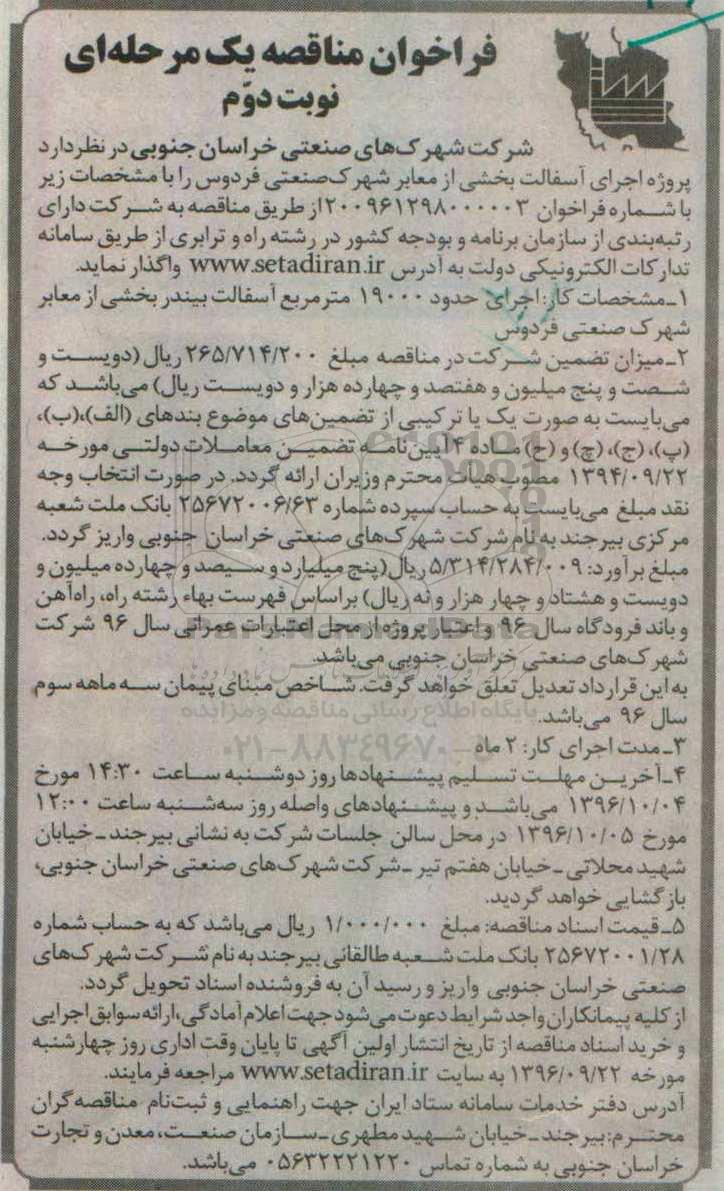 فراخوان مناقصه یک مرحله‌ای
نوبت دوّم
شرکت شهرک‌های صنعتی خراسان جنوبی در نظر دارد
پروژه اجرای آسفالت بخشی از معابر شهرک صنعتی فردوس را با مشخصات زیر
با شماره فراخوان ۲۰۰۹۶۱۲۹۸۰۰۰۰۰۳ از طریق مناقصه به شرکت دارای
رتبه‌بندی از سازمان برنامه و بودجه کشور در رشته راه و ترابری از طریق سامانه
تدارکات الکترونیکی دولت به آدرس www.setadiran.ir واگذار نماید.
۱ـ مشخصات کار: اجرای حدود ۱۹۰۰۰ مترمربع آسفالت بیندر بخشی از معابر
شهرک صنعتی فردوس
۲ـ میزان تضمین شرکت در مناقصه مبلغ ۲۶۵/۷۱۴/۲۰۰ ریال (دویست و
شصت و پنج میلیون و هفتصد و چهارده هزار و دویست ریال) می‌باشد که
می‌بایست به صورت یک یا ترکیبی از تضمین‌های موضوع بندهای (الف)،(ب)،
(پ)، (ج)، (چ) و (ح) ماده ۴ آیین‌نامه تضمین معاملات دولتی مورخه
۱۳۹۴/۰۹/۲۲ مصوب هیات محترم وزیران ارائه گردد. در صورت انتخاب وجه
نقد مبلغ می‌بایست به حساب سپرده شماره ۲۵۶۷۲۰۰۶/۶۳ بانک ملت شعبه
مرکزی بیرجند به نام شرکت شهرک‌های صنعتی خراسان جنوبی واریز گردد.
مبلغ برآورد: ۵/۳۱۴/۲۸۴/۰۰۹ ریال (پنج میلیارد و سیصد و چهارده میلیون و
دویست و هشتاد و چهار هزار و نه ریال) براساس فهرست بهاء رشته راه، راه‌آهن
و باند فرودگاه سال ۹۶ و اعتبار پروژه از محل اعتبارات عمرانی سال ۹۶ شرکت
شهرک‌های صنعتی خراسان جنوبی می‌باشد.
به این قرارداد تعدیل تعلق خواهد گرفت. شاخص مبنای پیمان سه ماهه سوم
سال ۹۶ می‌باشد.
پایگاه اطلاع رسانی مناقصه و مزایده
۳ـ مدت اجرای کار: ۲ ماه
۰۲۱-۸۸۳۴۹۶۷۰-۵
۴ـ آخرین مهلت تسلیم پیشنهادها روز دوشنبه ساعت ۱۴:۳۰ مورخ
۱۳۹۶/۱۰/۰۴ می‌باشد و پیشنهادهای واصله روز سه‌شنبه ساعت ۱۲:۰۰
مورخ ۱۳۹۶/۱۰/۰۵ در محل سالن جلسات شرکت به نشانی بیرجند ـ خیابان
شهید محلاتی ـ خیابان هفتم تیر ـ شرکت شهرک‌های صنعتی خراسان جنوبی،
بازگشایی خواهد گردید.
۵ـ قیمت اسناد مناقصه: مبلغ ۱/۰۰۰/۰۰۰ ریال می‌باشد که به حساب شماره
۲۵۶۷۲۰۰۱/۲۸ بانک ملت شعبه طالقانی بیرجند به نام شرکت شهرک‌های
صنعتی خراسان جنوبی واریز و رسید آن به فروشنده اسناد تحویل گردد.
از کلیه پیمانکاران واجد شرایط دعوت می‌شود جهت اعلام آمادگی، ارائه سوابق اجرایی
و خرید اسناد مناقصه از تاریخ انتشار اولین آگهی تا پایان وقت اداری روز چهارشنبه
مورخه ۱۳۹۶/۰۹/۲۲ به سایت www.setadiran.ir مراجعه فرمایند.
آدرس دفتر خدمات سامانه ستاد ایران جهت راهنمایی و ثبت‌نام مناقصه‌گران
محترم: بیرجند ـ خیابان شهید مطهری ـ سازمان صنعت، معدن و تجارت
خراسان جنوبی به شماره تماس ۰۵۶۳۲۲۲۱۲۲۰ می‌باشد.